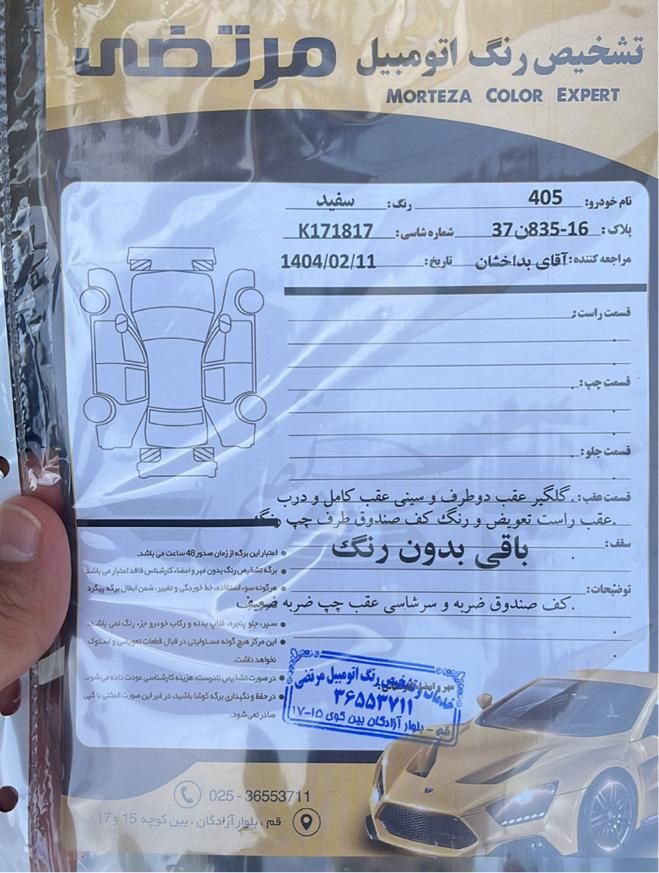 تشخیص رنگ اتومبیل مرتضی
MORTEZA COLOR EXPERT
نام خودرو: 405 رنگ: سفید
پلاک: 16-835ن37 شماره شاسی: K171817
مراجعه کننده: آقای بداخشان تاریخ: 1404/02/11
قسمت راست:
قسمت چپ:
قسمت جلو:
قسمت عقب: گلگیر عقب دوطرف و سینی عقب کامل و درب
عقب راست تعویض و رنگ کف صندوق طرف چپ رنگ.
سقف: باقی بدون رنگ
توضیحات:
کف صندوق ضربه و سرشاسی عقب چپ ضربه ضعیف.
اعتبار این برگه از زمان صدور 48 ساعت می باشد.
برگه تشخیص رنگ بدون مهر و امضاء کارشناس فاقد اعتبار می باشد
هرگونه سوء استفاده، خط خوردگی و تغییر، ضمن ابطال برگه پیگرد
سپر، جلو پنجره، قلاب بدنه و رکاب خودرو جزء رنگ نمی باشد.
این مرکز هیچ گونه مسئولیتی در قبال قطعات تعویضی و استوک
نخواهد داشت.
در صورت تشخیص نادرست، هزینه کارشناسی عودت داده می شود.
در حفظ و نگهداری برگه کوشا باشید، در غیر این صورت المثنی یا کپی
صادر نمی شود.
مهر و امضا
خدمات تشخیص رنگ اتومبیل مرتضی
۳۶۵۵۳۷۱۱
قم - بلوار آزادگان بین کوی ۱۵-۱۷
025 - 36553711
قم ، بلوار آزادگان ، بین کوچه 15 و 17